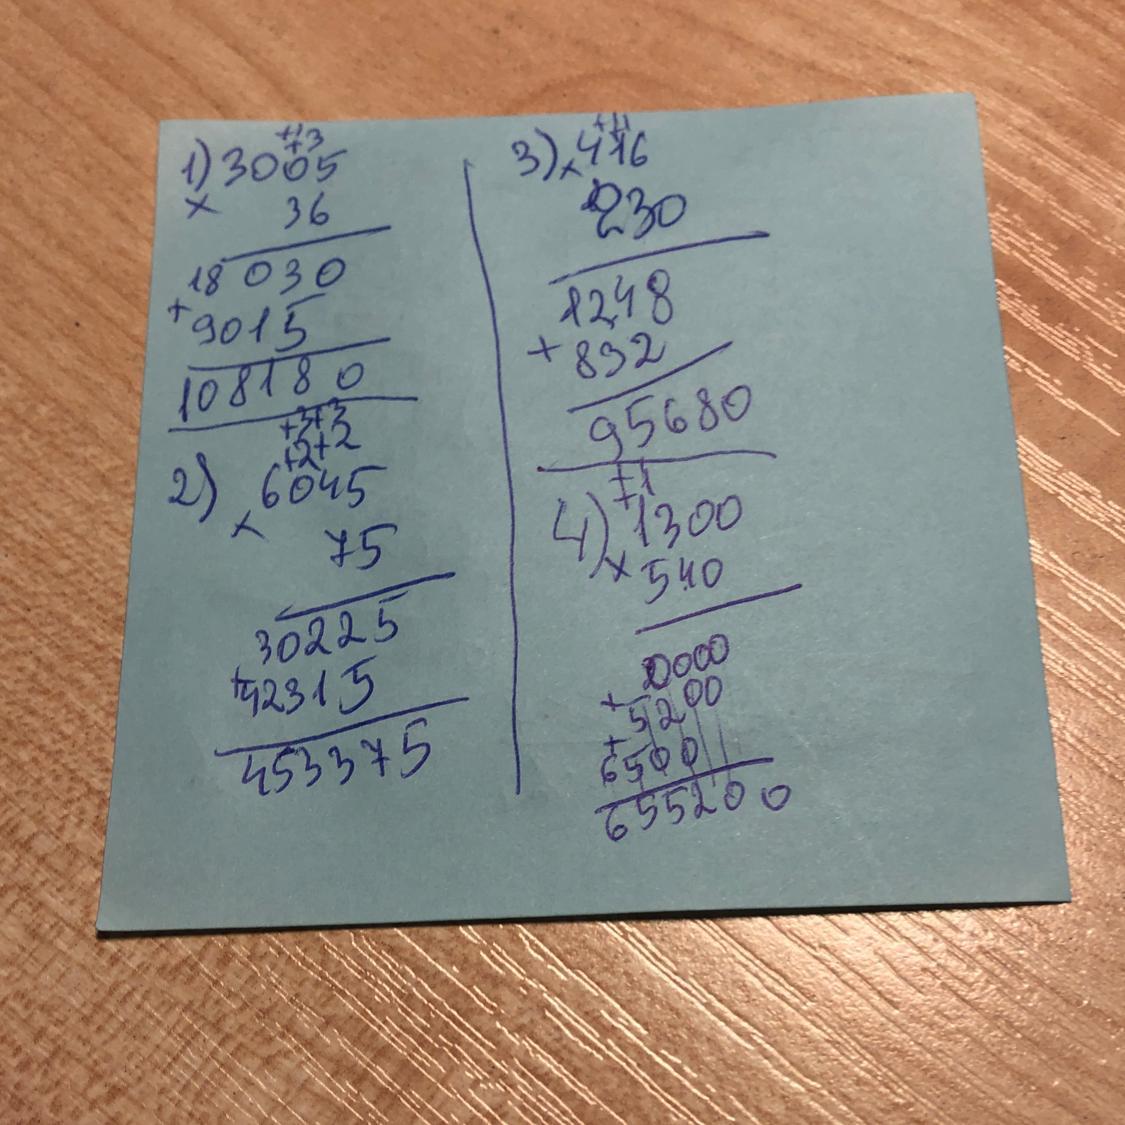 +1
+3
1) 3005
× 36
18030
+
9015
108180
+3+3
+2+2
2) 6045
×
75
30225
+
42315
453375
+1
3) × 416
230
1248
+ 832
95680
+1
4) 1300
× 540
0000
+
5200
+
6500
655200